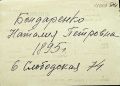 Бондаренко
Наталия Петровна
1895 г.
6 Слободская 74